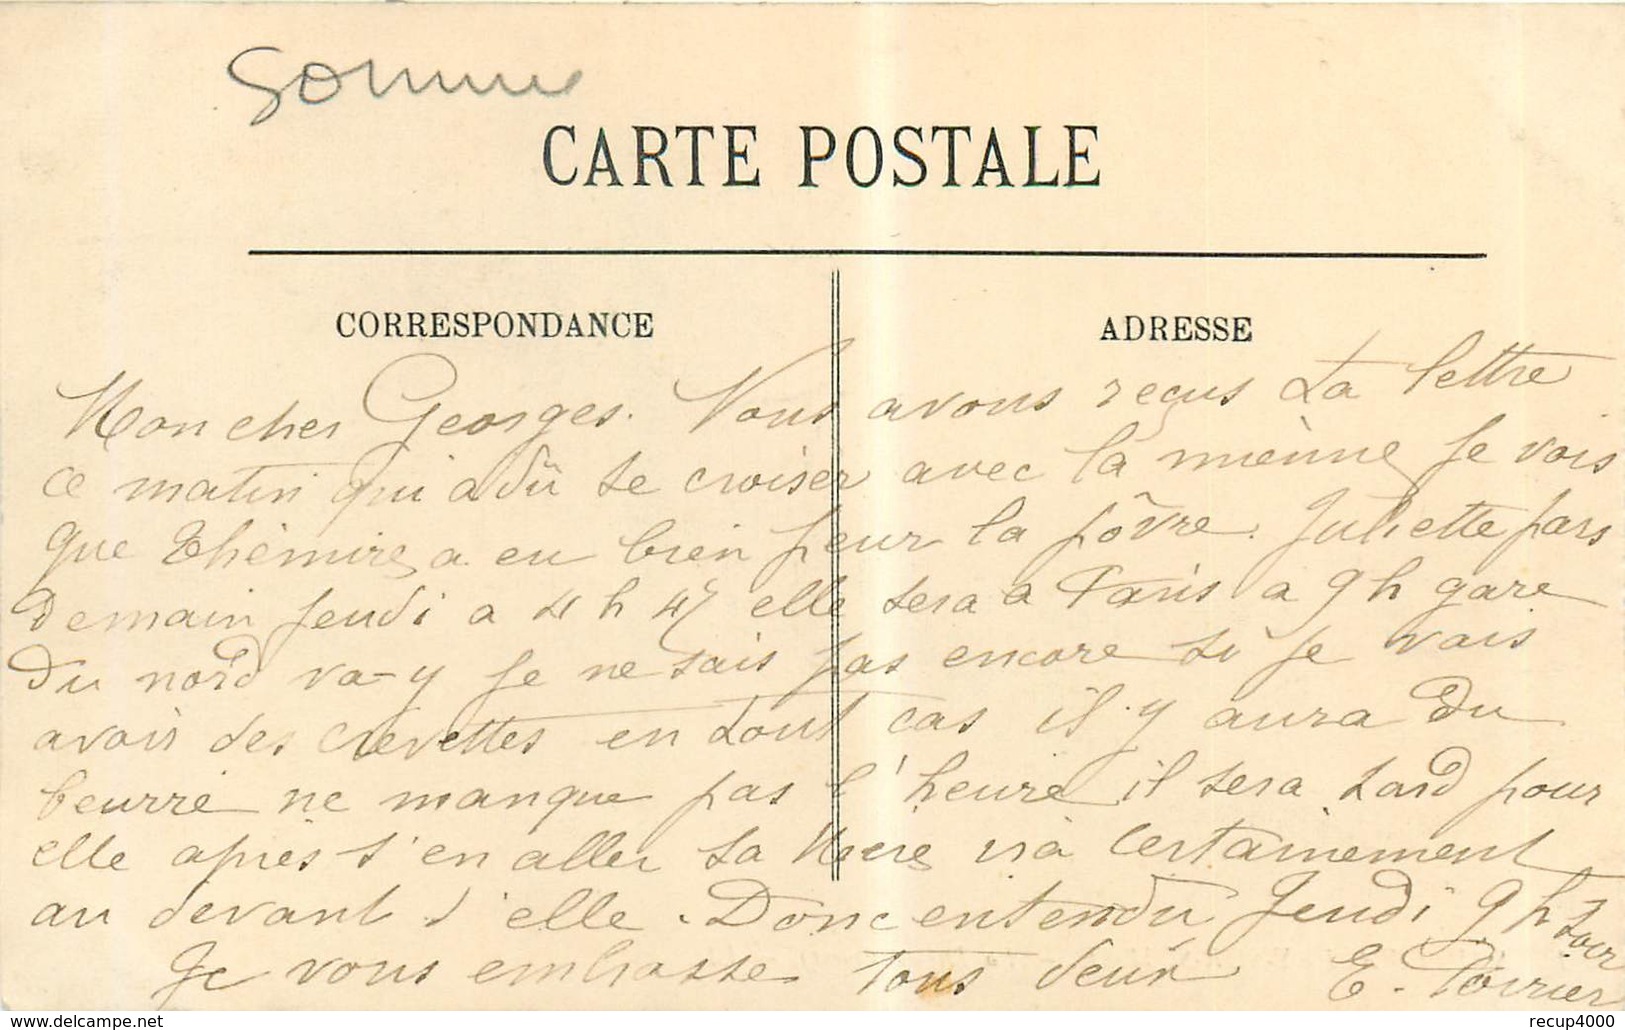 Somme
CARTE POSTALE
CORRESPONDANCE
ADRESSE
Mon cher Georges. Nous avons reçus ta lettre
ce matin qui a dû se croiser avec la mienne Je vois
que Thémire a eu bien peur la pôvre. Juliette pars
demain Jeudi a 4 h 45 elle sera a Paris a 9 h gare
du nord va-y Je ne sais pas encore si je vais
avoir des crevettes en tout cas il y aura du
beurre ne manque pas l'heure il sera tard pour
elle après s'en aller sa Mère ira certainement
au devant d'elle. Donc entendu Jeudi 9 h soir
Je vous embrasse tous deux E. Poirier
www.delcampe.net
recup4000